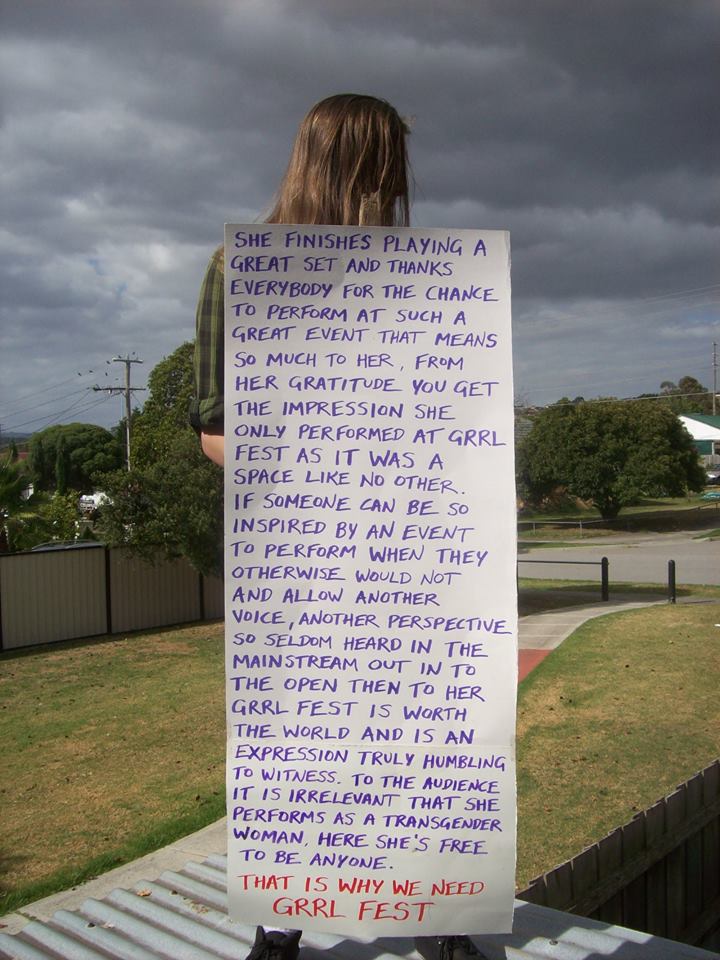 SHE FINISHES PLAYING A
GREAT SET AND THANKS
EVERYBODY FOR THE CHANCE
TO PERFORM AT SUCH A
GREAT EVENT THAT MEANS
SO MUCH TO HER, FROM
HER GRATITUDE YOU GET
THE IMPRESSION SHE
ONLY PERFORMED AT GRRL
FEST AS IT WAS A
SPACE LIKE NO OTHER.
IF SOMEONE CAN BE SO
INSPIRED BY AN EVENT
TO PERFORM WHEN THEY
OTHERWISE WOULD NOT
AND ALLOW ANOTHER
VOICE, ANOTHER PERSPECTIVE
SO SELDOM HEARD IN THE
MAINSTREAM OUT IN TO
THE OPEN THEN TO HER
GRRL FEST IS WORTH
THE WORLD AND IS AN
EXPRESSION TRULY HUMBLING
TO WITNESS. TO THE AUDIENCE
IT IS IRRELEVANT THAT SHE
PERFORMS AS A TRANSGENDER
WOMAN, HERE SHE'S FREE
TO BE ANYONE.
THAT IS WHY WE NEED
GRRL FEST